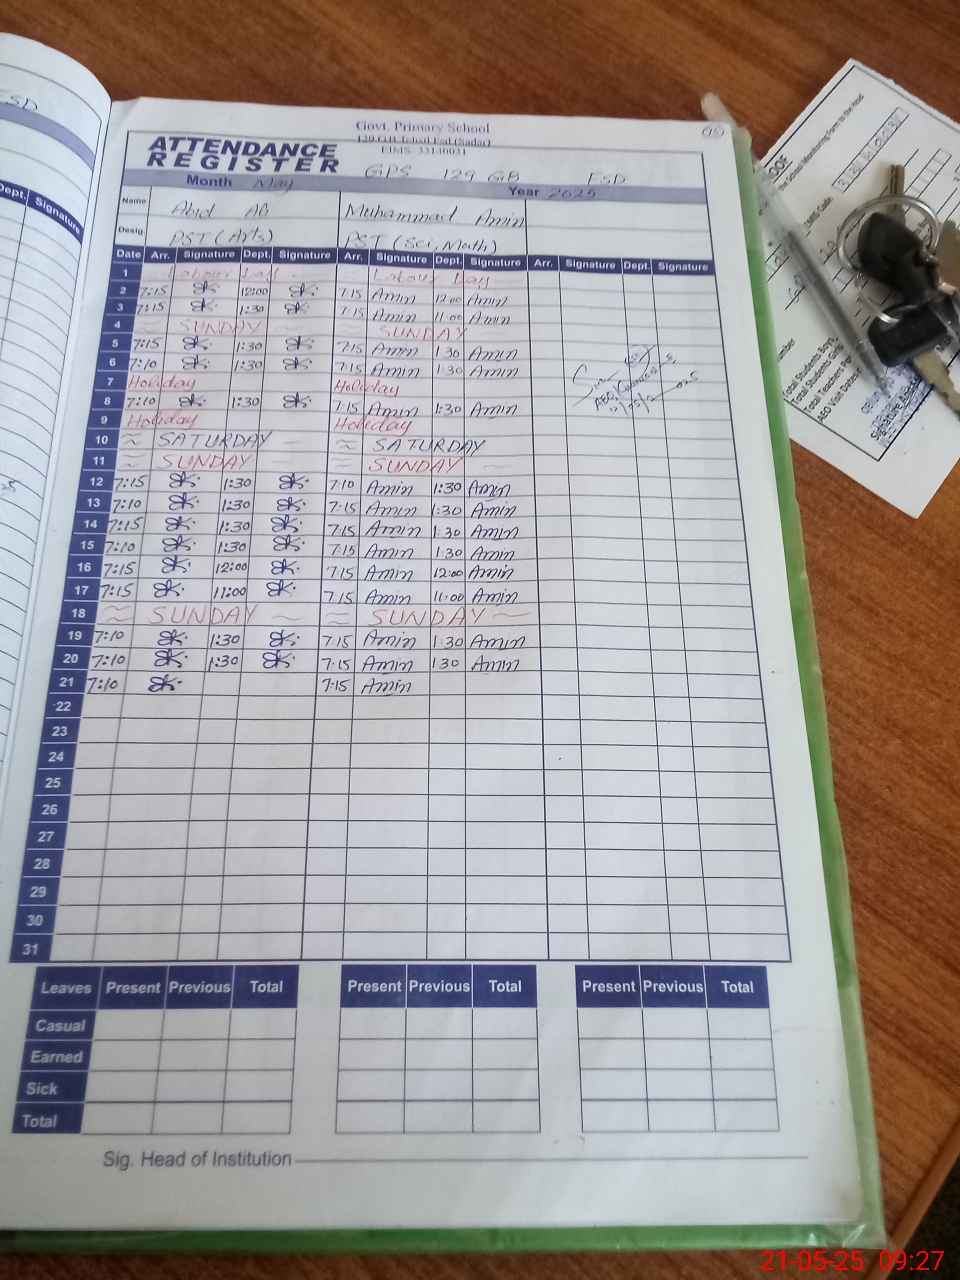 Govt. Primary School
ATTENDANCE
REGISTER
GPS 129 GB FSD
Month May Year 2025
Name Abid Ali Muhammad Amin
Desig. PST (Arts) PST (Sci, Math)
Date Arr. Signature Dept. Signature Arr. Signature Dept. Signature Arr. Signature Dept. Signature
1 Labour Day Labour Day
2 7:15 12:00 7:15 Amin 12:00 Amin
3 7:15 1:30 7:15 Amin 11:00 Amin
4 SUNDAY SUNDAY
5 7:15 1:30 7:15 Amin 1:30 Amin
6 7:10 1:30 7:15 Amin 1:30 Amin
7 Holiday Holiday
8 7:10 1:30 7:15 Amin 1:30 Amin
9 Holiday Holiday
10 SATURDAY SATURDAY
11 SUNDAY SUNDAY
12 7:15 1:30 7:10 Amin 1:30 Amin
13 7:10 1:30 7:15 Amin 1:30 Amin
14 7:15 1:30 7:15 Amin 1:30 Amin
15 7:10 1:30 7:15 Amin 1:30 Amin
16 7:15 12:00 7:15 Amin 12:00 Amin
17 7:15 11:00 7:15 Amin 11:00 Amin
18 SUNDAY SUNDAY
19 7:10 1:30 7:15 Amin 1:30 Amin
20 7:10 1:30 7:15 Amin 1:30 Amin
21 7:10 7:15 Amin
22
23
24
25
26
27
28
29
30
31
Leaves Present Previous Total Present Previous Total Present Previous Total
Casual
Earned
Sick
Total
Sig. Head of Institution
FSD
Dept. Signature
Total Students Boys
Total Students
Total Teachers
AEO Visit Date
21-05-25 09:27